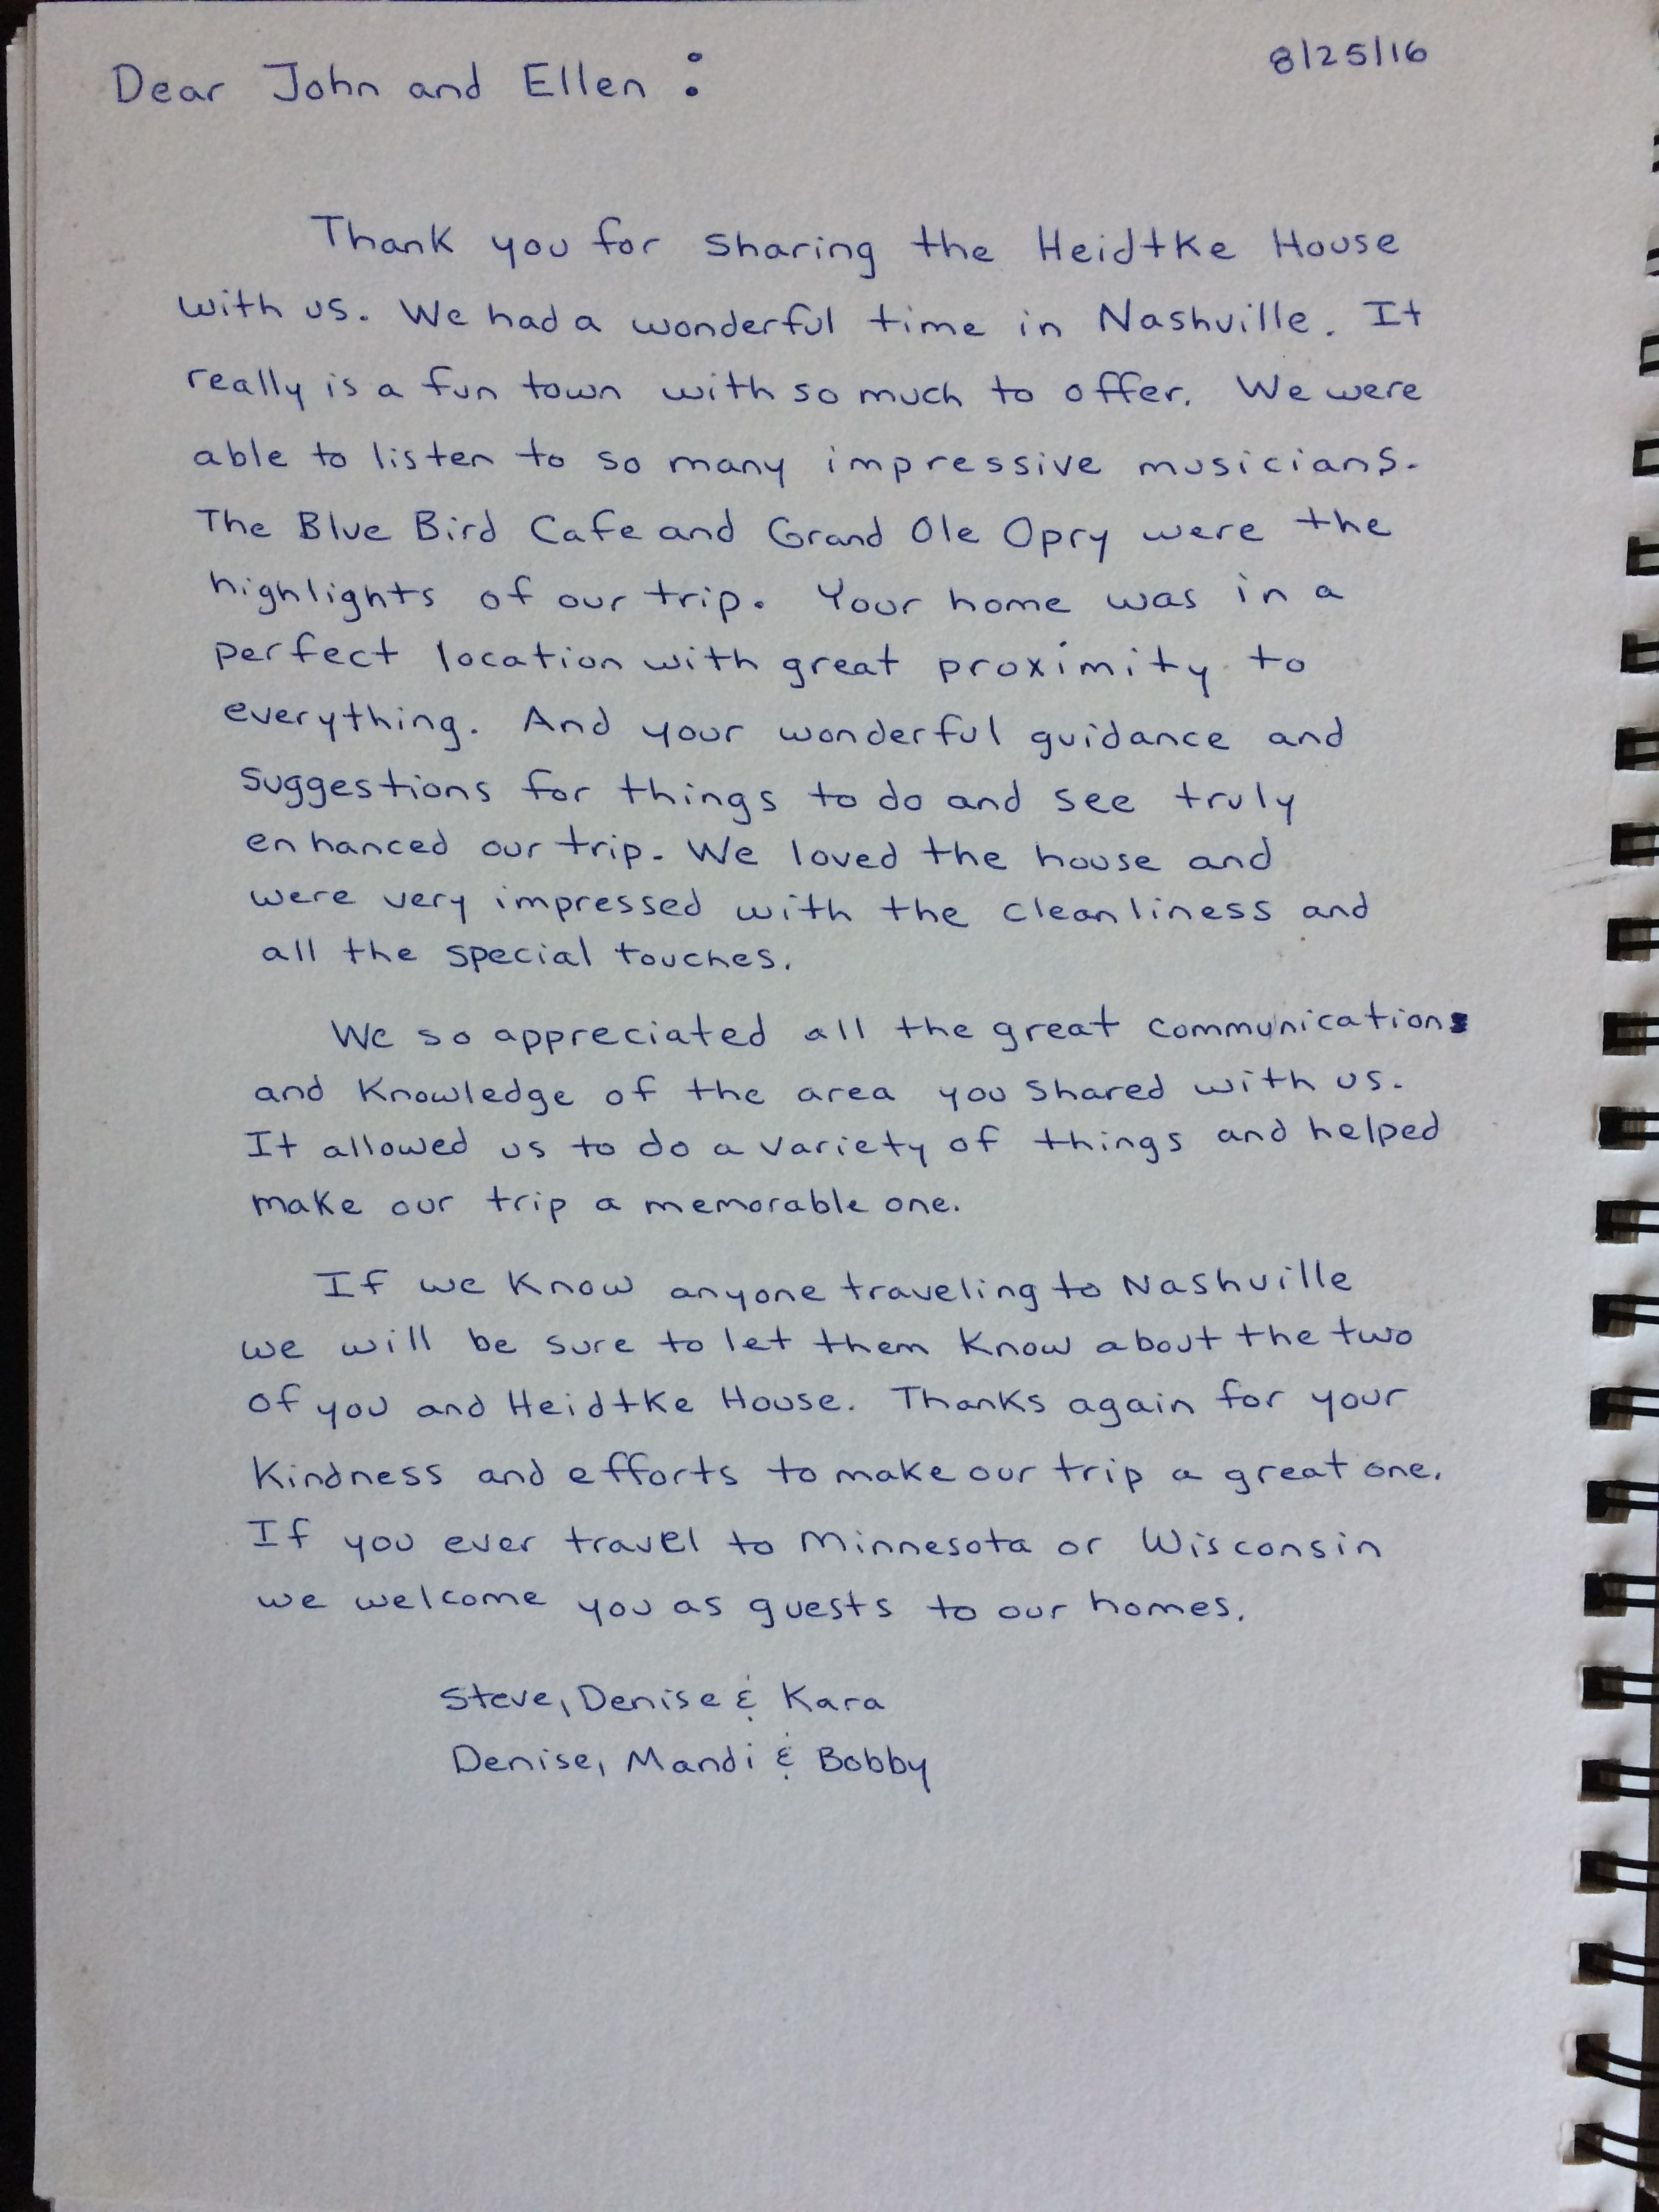 8/25/16
Dear John and Ellen :
Thank you for sharing the Heidtke House
with us. We had a wonderful time in Nashville. It
really is a fun town with so much to offer. We were
able to listen to so many impressive musicians.
The Blue Bird Cafe and Grand Ole Opry were the
highlights of our trip. Your home was in a
perfect location with great proximity to
everything. And your wonderful guidance and
suggestions for things to do and see truly
enhanced our trip. We loved the house and
were very impressed with the cleanliness and
all the special touches.
We so appreciated all the great communications
and knowledge of the area you shared with us.
It allowed us to do a variety of things and helped
make our trip a memorable one.
If we know anyone traveling to Nashville
we will be sure to let them know about the two
of you and Heidtke House. Thanks again for your
kindness and efforts to make our trip a great one.
If you ever travel to Minnesota or Wisconsin
we welcome you as guests to our homes.
Steve, Denise & Kara
Denise, Mandi & Bobby